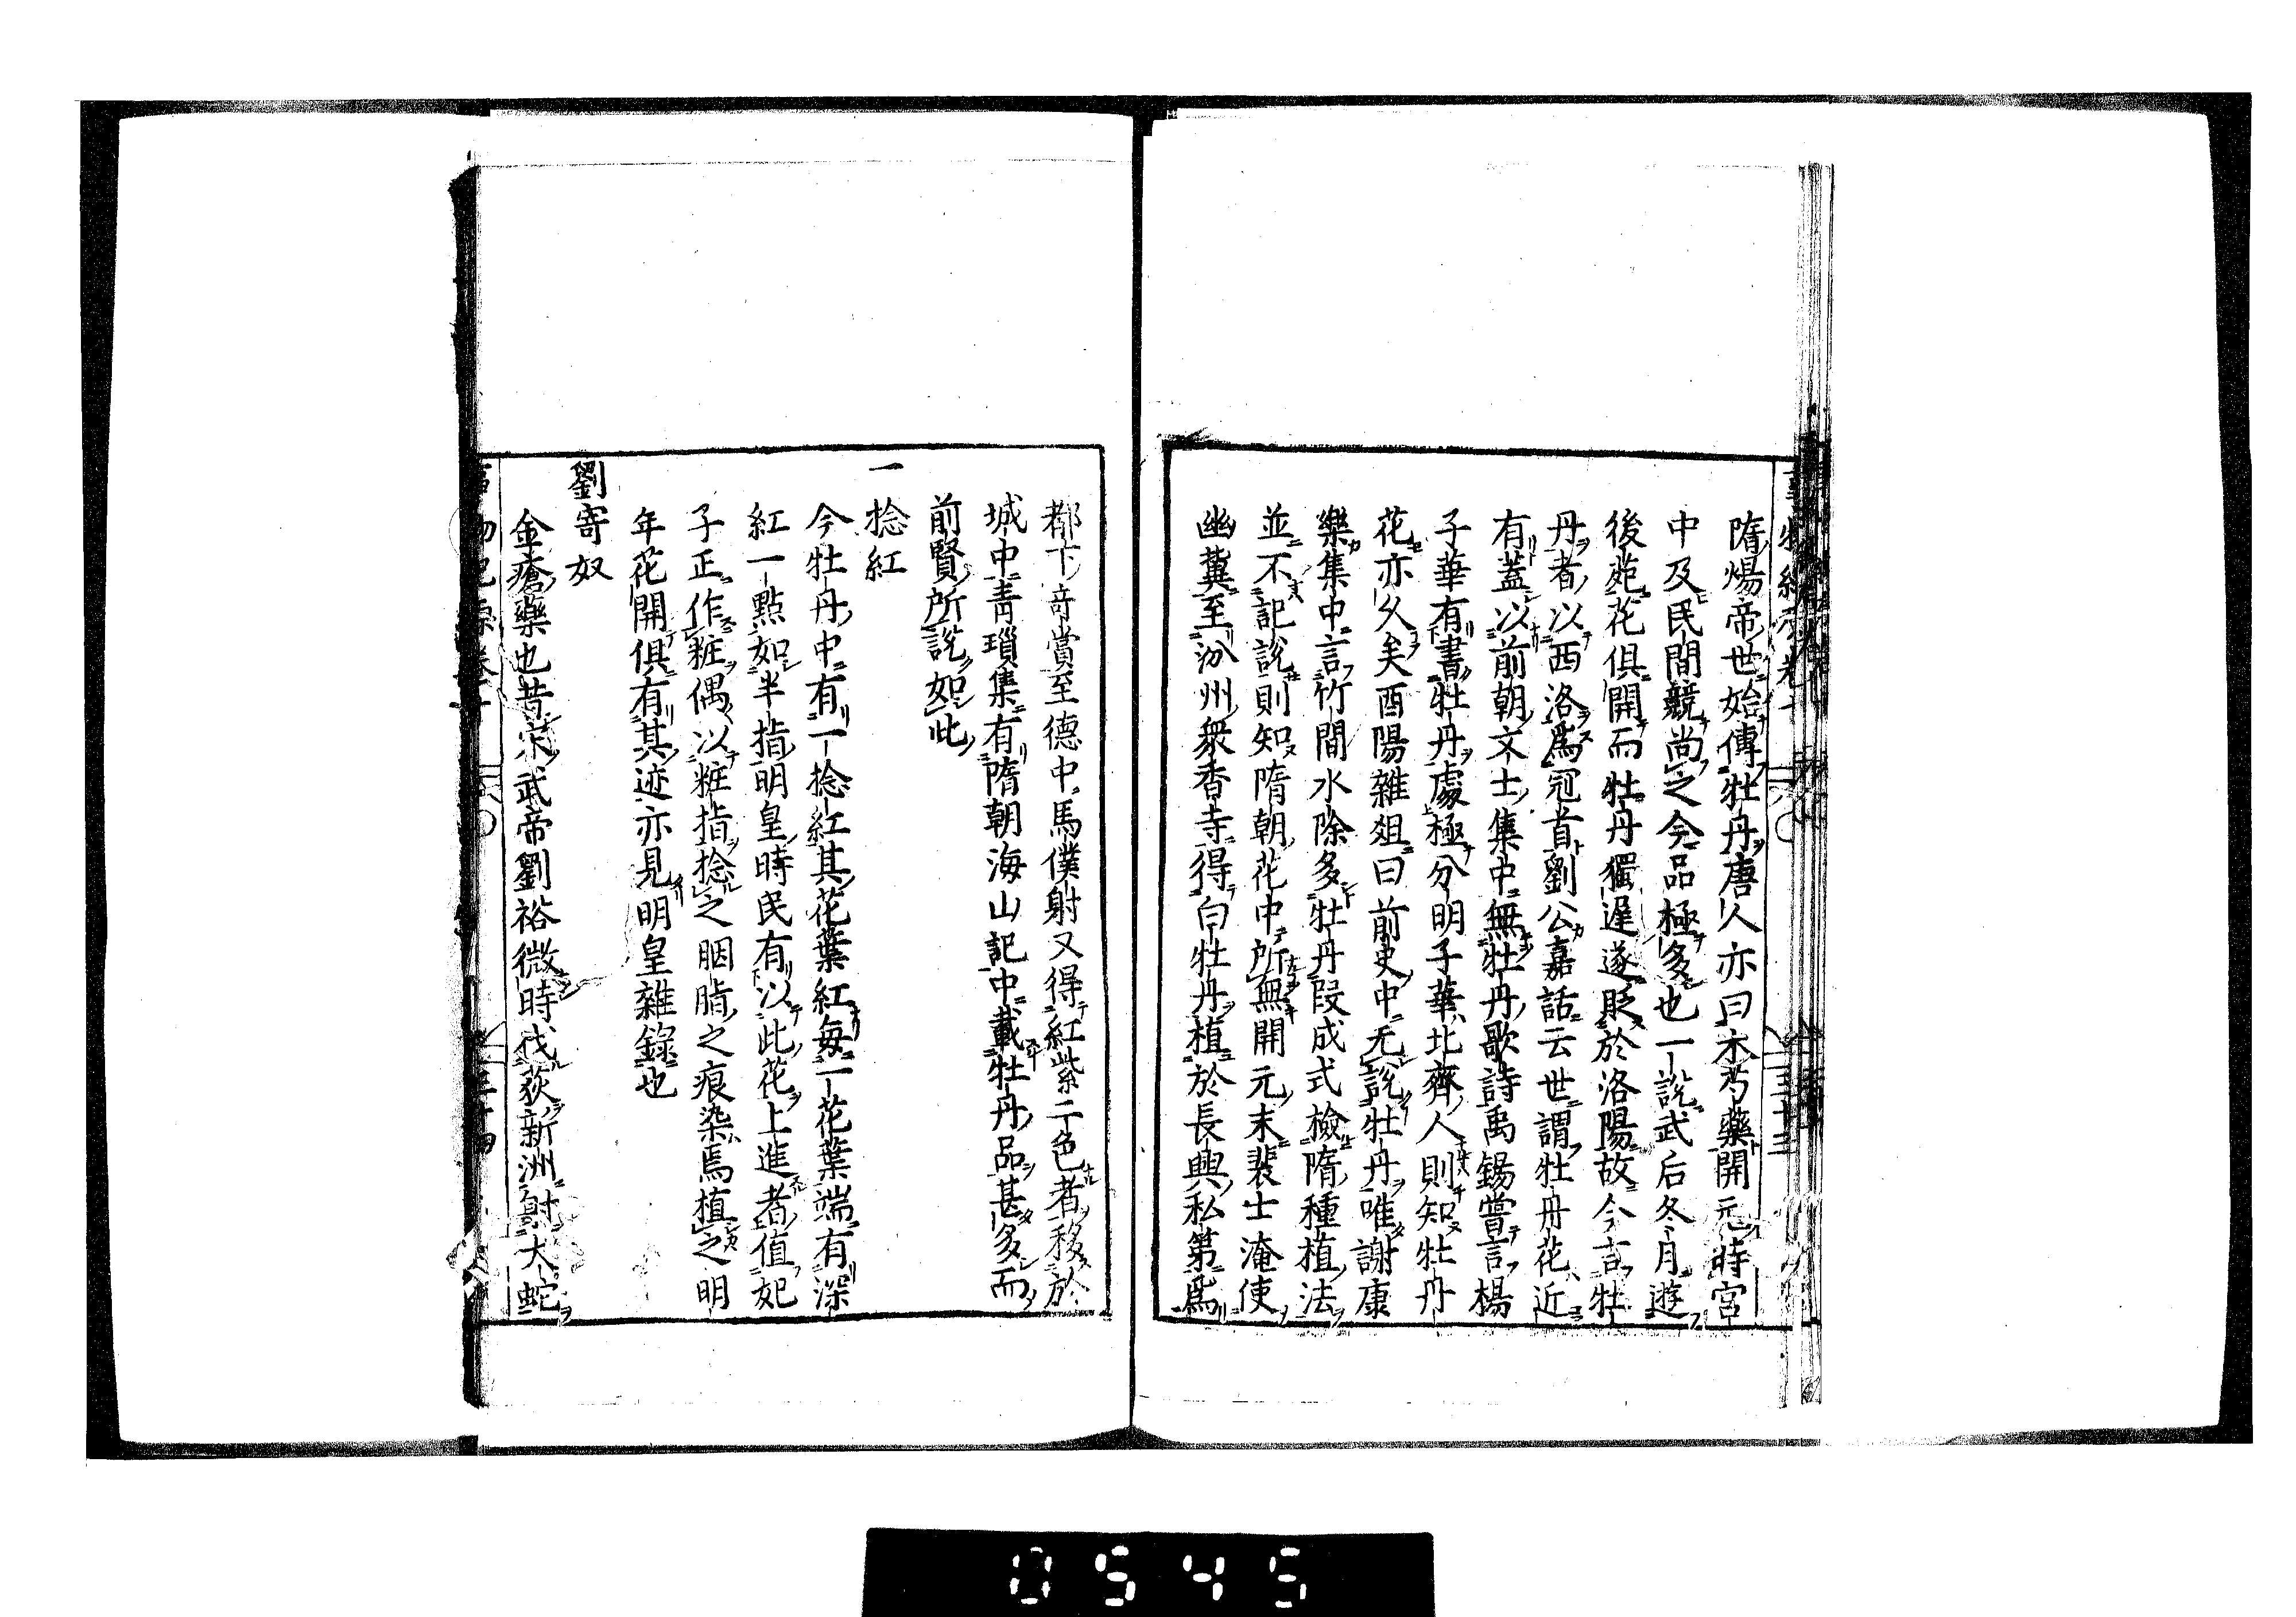 隋煬帝世始傳牡丹唐人亦曰木芍藥開元時宮
中及民間競尚之今品極多也一說武后冬月遊
後苑花俱開而牡丹獨遲遂貶於洛陽故今言牡
丹者以西洛爲冠首劉公嘉話云世謂牡丹花近
有蓋以前朝文士集中無牡丹歌詩禹錫嘗言楊
子華有書牡丹處極分明子華北齊人則知牡丹
花亦久矣酉陽雜俎曰前史中无說牡丹唯謝康
樂集中言竹間水除多牡丹段成式檢隋種植法
並不記說則知隋朝花中所無開元末裴士淹使
幽冀至汾州衆香寺得白牡丹植於長興私第爲
都下奇賞至德中馬僕射又得紅紫二色者移於
城中青瑣集有隋朝海山記中載牡丹品甚多而
前賢所說如此
一捻紅
今牡丹中有一捻紅其花葉紅每一花葉端有深
紅一點如半指明皇時民有以此花上進者值妃
子正作粧偶以粧指捻之胭脂之痕染焉植之明
年花開俱有其迹亦見明皇雜錄也
劉寄奴
金瘡藥也昔宋武帝劉裕微時伐荻新洲射大蛇
0545